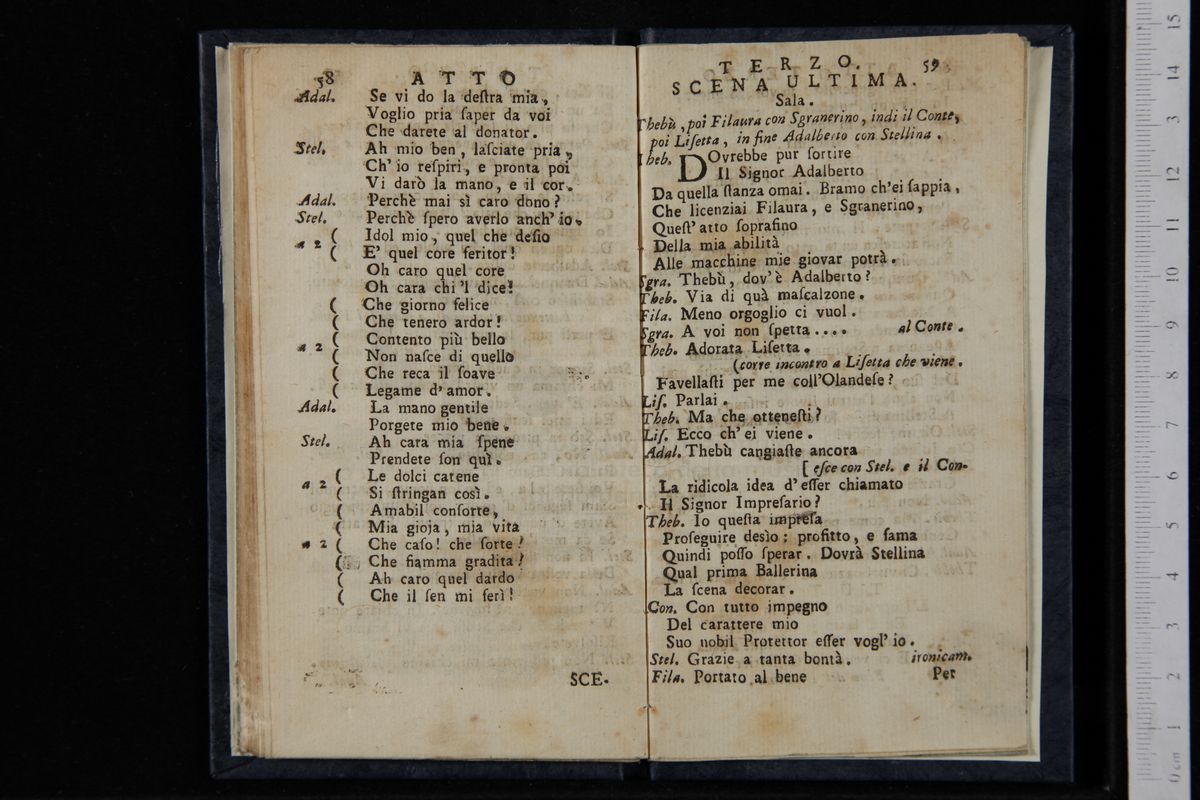 58 ATTO
Adal. Se vi do la deſtra mia,
Voglio pria ſaper da voi
Che darete al donator.
Stel. Ah mio ben, laſciate pria,
Ch' io reſpiri, e pronta poi
Vi darò la mano, e il cor.
Adal. Perchè mai sì caro dono?
Stel. Perchè ſpero averlo anch' io.
( Idol mio, quel che deſio
a 2
( E' quel core feritor!
Oh caro quel core
Oh cara chi 'l dice!
( Che giorno felice
( Che tenero ardor!
( Contento più bello
a 2
( Non naſce di quello
( Che reca il ſoave
( Legame d' amor.
Adal. La mano gentile
Porgete mio bene.
Stel. Ah cara mia ſpene
Prendete ſon quì.
( Le dolci catene
a 2
( Si ſtringan così.
( Amabil conſorte,
( Mia gioja, mia vita
a 2 ( Che caſo! che ſorte!
( Che fiamma gradita!
( Ah caro quel dardo
( Che il ſen mi ferì!
SCE-
TERZO. 59
SCENA ULTIMA.
Sala.
Thebù, poi Filaura con Sgranerino, indi il Conte,
poi Liſetta, in fine Adalberto con Stellina.
Theb. DOvrebbe pur ſortire
Il Signor Adalberto
Da quella ſtanza omai. Bramo ch'ei ſappia,
Che licenziai Filaura, e Sgranerino,
Queſt' atto ſoprafino
Della mia abilità
Alle macchine mie giovar potrà.
Sgra. Thebù, dov' è Adalberto?
Theb. Via di quà maſcalzone.
Fila. Meno orgoglio ci vuol.
Sgra. A voi non ſpetta.... al Conte.
Theb. Adorata Liſetta.
(corre incontro a Liſetta che viene.
Favellaſti per me coll'Olandeſe?
Liſ. Parlai.
Theb. Ma che otteneſti?
Liſ. Ecco ch' ei viene.
Adal. Thebù cangiaſte ancora
[ eſce con Stel. e il Con.
La ridicola idea d' eſſer chiamato
Il Signor Impreſario?
Theb. Io queſta impreſa
Proſeguire desìo: profitto, e fama
Quindi poſſo ſperar. Dovrà Stellina
Qual prima Ballerina
La ſcena decorar.
Con. Con tutto impegno
Del carattere mio
Suo nobil Protettor eſſer vogl' io.
Stel. Grazie a tanta bontà. ironicam.
Fila. Portato al bene
Per